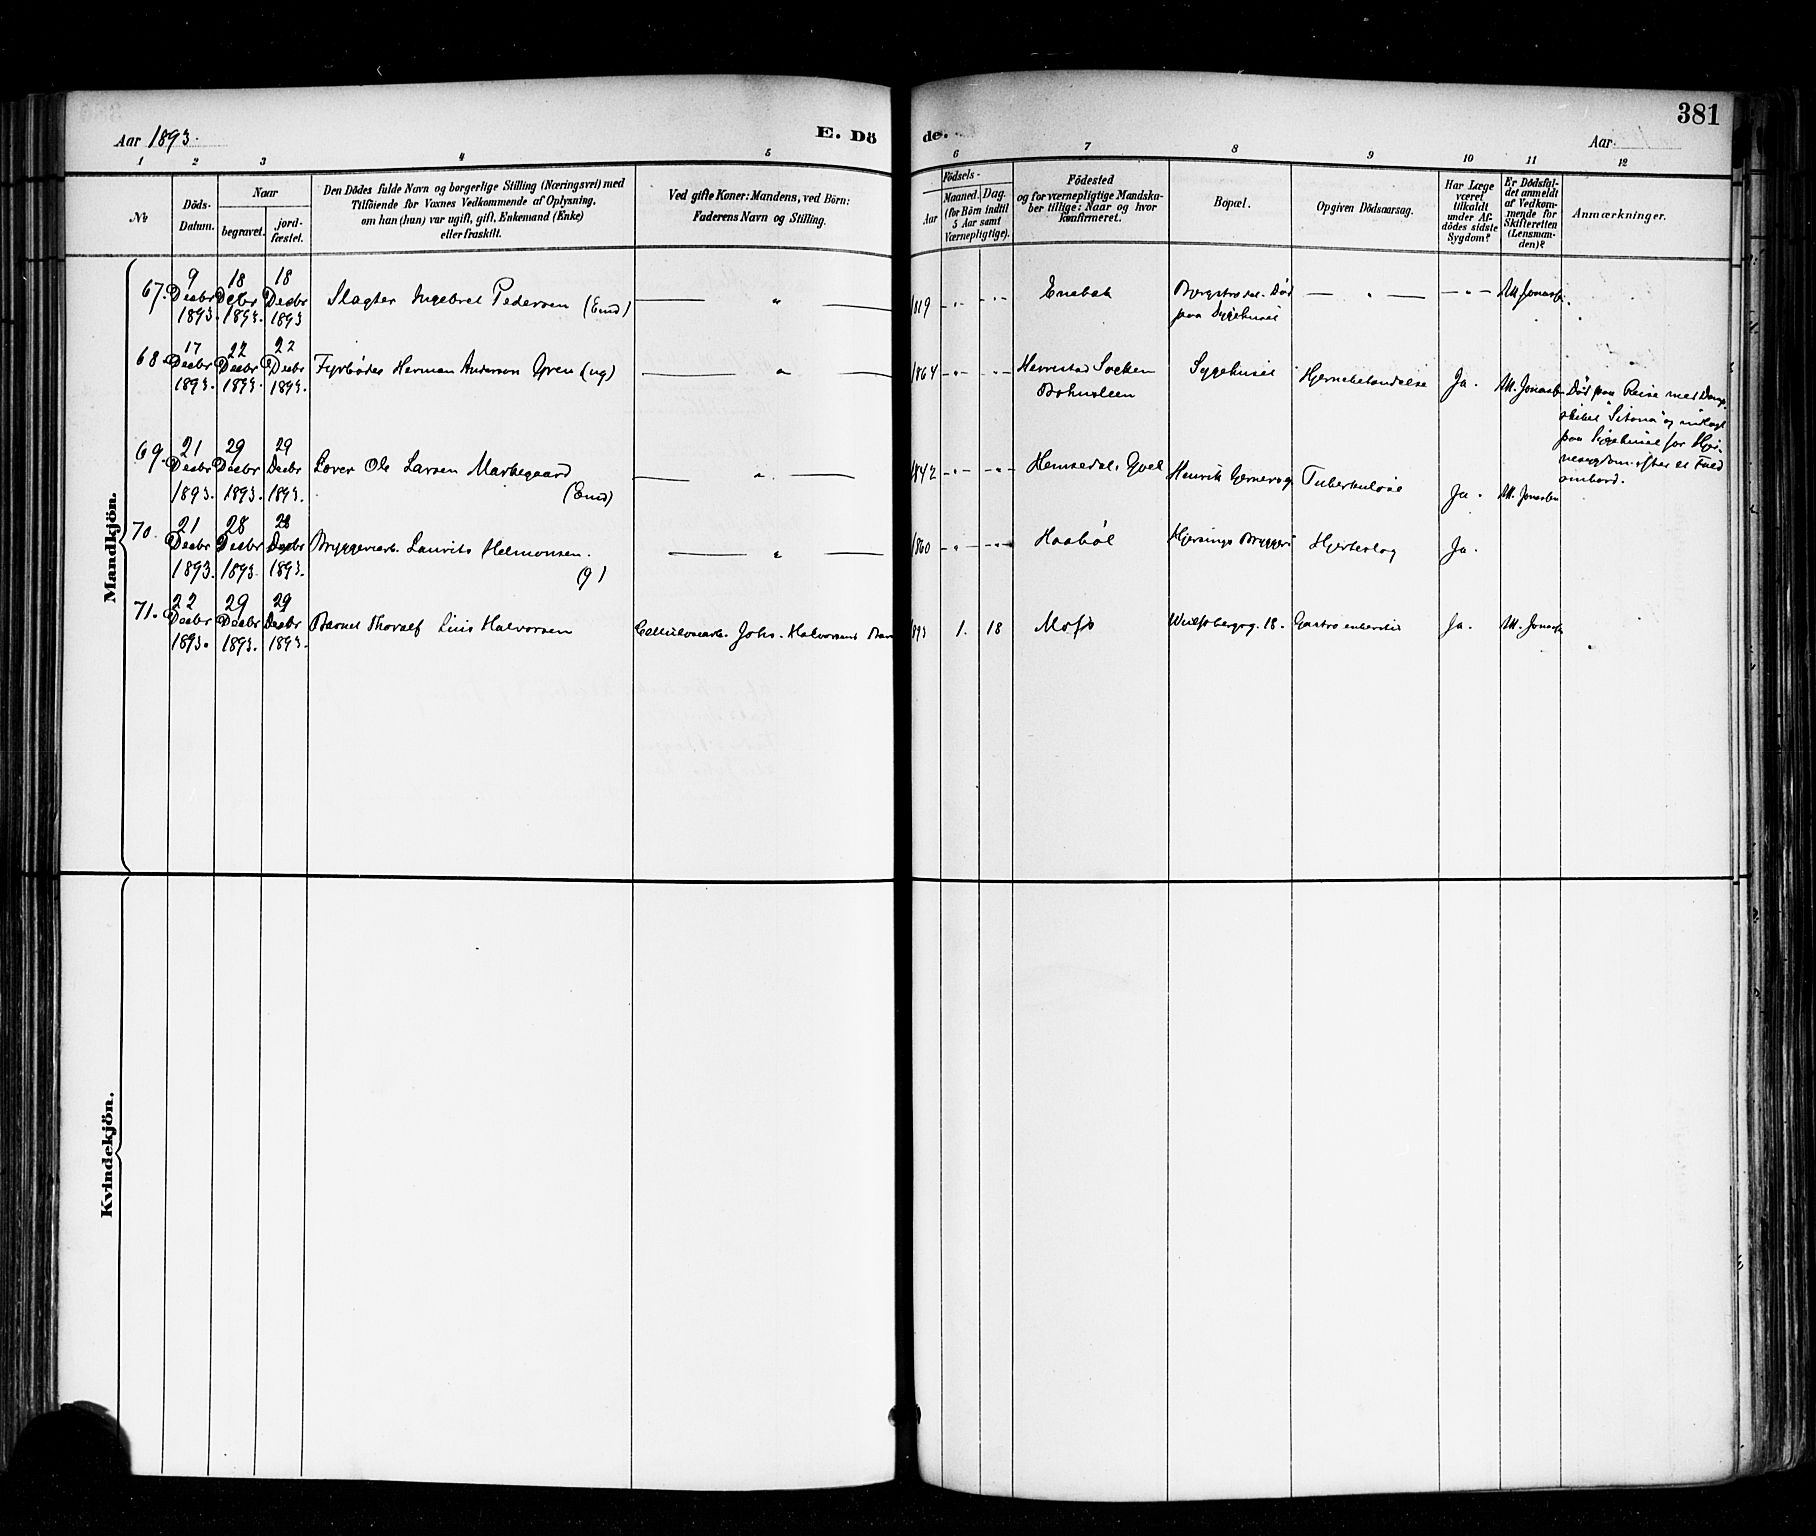 381
Aar 1893.
E. Dö
de.
Aar
1 2 3 4 5 6 7 8 9 10 11 12
№
Döds-
Datum.
Naar
begravet.
jord-
fæstet.
Den Dödes fulde Navn og borgerlige Stilling (Næringsvei) med
Tilföiende for Voxnes Vedkommende af Oplysning,
om han (hun) var ugift, gift, Enkemand (Enke)
eller fraskilt.
Ved gifte Koner: Mandens, ved Börn:
Faderens Navn og Stilling.
Födsels-
Aar
Maaned. Dag.
(for Börn indtil
5 Aar samt
Værnepligtige).
Födested
og for værnepligtige Mandska-
ber tillige: Naar og hvor
konfirmeret.
Bopæl.
Opgiven Dödsaarsag.
Har Læge
været
tilkaldt
under Af-
dödes sidste
Sygdom?
Er Dödsfal-
det anmeldt
af Vedkom-
mende for
Skifteretten
(Lensman-
den)?
Anmærkninger.
Mandkjön.
67. 9 Decbr 1893. 18 Decbr 1893. 18 Decbr 1893 Slagter Ingebret Pedersen (Emd) — " — 1819 - " - - " - Enebak
paa Sygehuset — " — — " — Att. Jonassen
68. 17 Decbr 1893. 22 Decbr 1893. 22 Decbr 1893. Fyrböder Herman Anderson Gren (ug) — " — 1864 - " - - " - Herrestad Socken
Bohuslæn Sygehuset Hjernebetændelse Ja. Att. Jonassen Död paa Reise med Damp-
skibet
paa Sygehuset for Hjer-
nesygdom efter et Fald
ombord.
69. 21 Decbr 1893. 29 Decbr 1893. 29 Decbr 1893. Ole Larsen Markegaard
(Emd) — " — 1842 - " - - " - Hemsedal Henrik Gernersg. Tuberkulose Ja. Att. Jonassen
70. 21 Decbr 1893. 28 Decbr 1893. 28 Decbr 1893. Bryggeriarb. Laurits Helmonsen.
(g) — " — 1860 - " - - " - Haaböl Bryggeri Hjerteslag Ja.
71. 22 Decbr 1893. 29 Decbr 1893. 29 Decbr 1893. Barnet Thoralf Halvorsen Cellulosearb. Johs. Halvorsens Barn 1893 1. 18 Moss Wulfsbergsg. 18. Gastro enteritis Ja. Att. Jonassen
Kvindekjön.